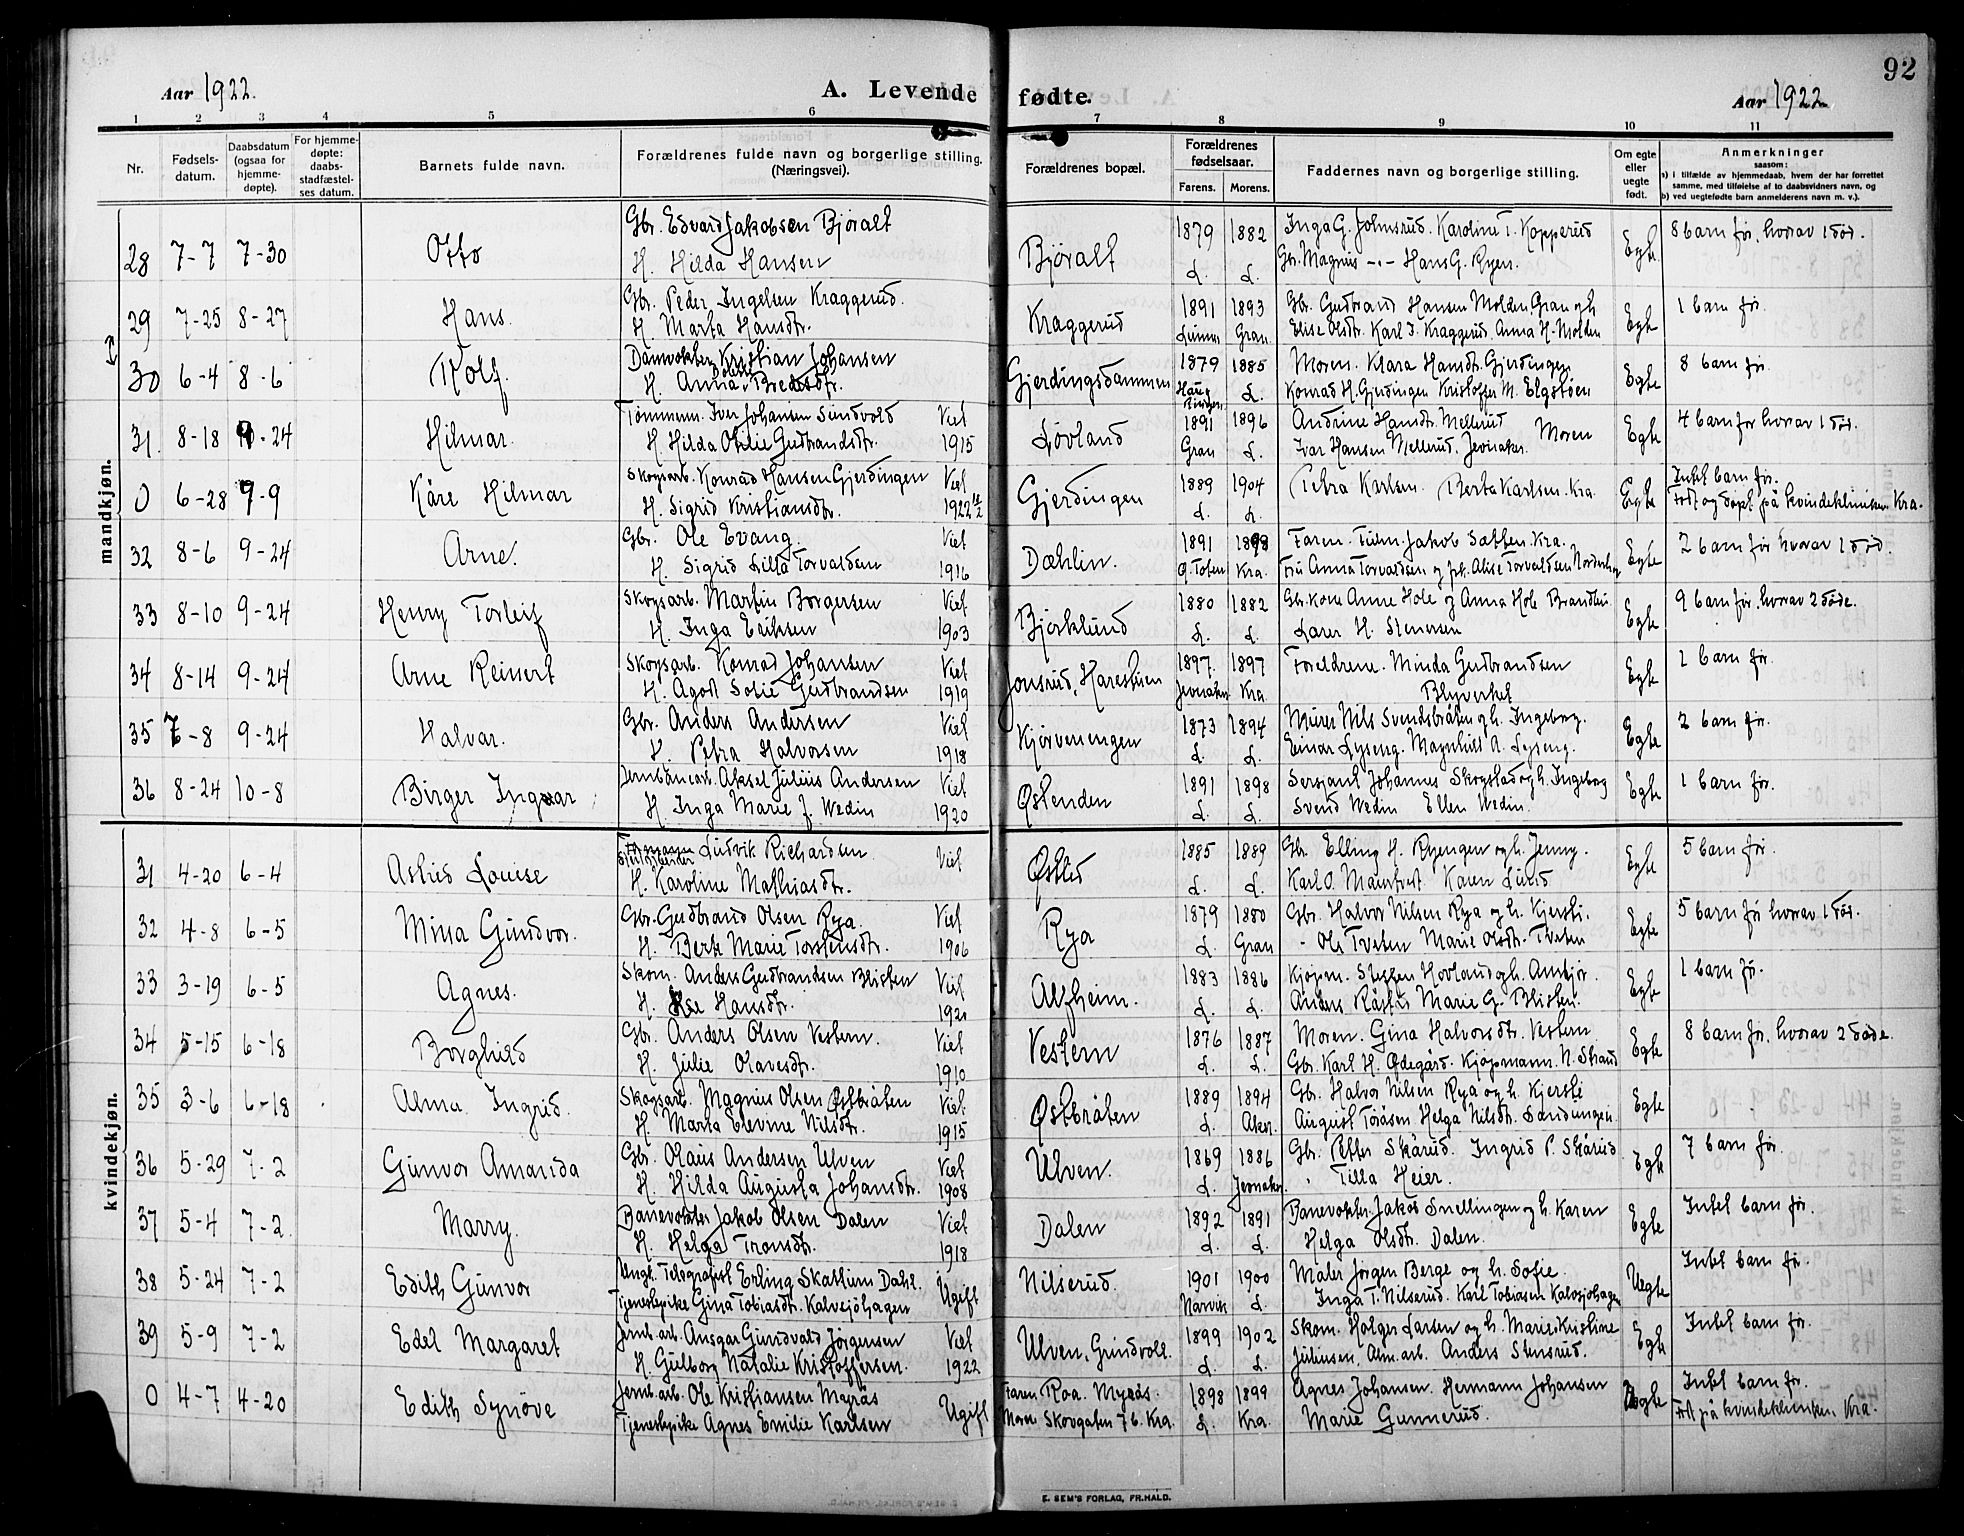 92
Aar 1922.
A. Levende fødte.
Aar 1922
1 2 3 4 5 6 7 8 9 10 11
Nr.
Fødsels-
datum.
Daabsdatum
(ogsaa for
hjemme-
døpte).
For hjemme-
døpte:
daabs-
stadfæstel-
ses datum.
Barnets fulde navn.
Forældrenes fulde navn og borgerlige stilling.
(Næringsvei).
Forældrenes bopæl.
Forældrenes
fødselsaar.
Farens. Morens.
Faddernes navn og borgerlige stilling.
Om egte
eller
uegte
født.
Anmerkninger
saasom:
a) i tilfælde av hjemmedaab, hvem der har forrettet
samme, med tilføielse af to daabsvidners navn, og
b) ved uegtefødte barn anmelderens navn m. v.).
mandkjøn.
Gbr. Edvard Jakobsen Bjøralt 1879 1882 Inga G. Johnsrud. Karoline T. Kopperud 8 barn før, hvorav 1 død.
28 7-7 7-30 Otto H. Hilda Hansen Bjøralt L. L. Gbr. Magnus -"- Hans G. Ryen. Egte.
Gbr. Peder Ingelsen Kraggerud. 1891 1893 Gbr. Gudbrand Hansen Molden Gran og h. 1 barn før.
29 7-25 8-27 Hans. H. Marta Hansdtr. Kraggerud Lunner Gran Elise Olsdtr. Karl I. Kraggerud Anna H. Molden Egte
Damvokter Kristian Johansen 1879 1885 Moren. Klara Hansdtr. Gjerdingen 8 barn før.
30 6-4 8-6 Rolf. H. Anna Bredesdtr. Gjerdingsdammen Haug Ringer. L. Konrad H. Gjerdingen Kristoffer M. Elgstøen Egte
Tømmerm. Iver Johansen Sundvold Viet 1891 1896 Andrine Hansdtr. Mellerud 4 barn før hvorav 1 død.
31. 8-18 9-24 Hilmar. H. Hilda Otilie Gudbrandsdtr. 1915 Løvland Gran L. Ivar Hansen Mellerud, Jevnaker. Moren Egte
Skogsarb. Konrad Hansen Gjerdingen Viet 1889 1904 Petra Karlsen. Berta Karlsen. Kra. Intet barn før.
0 6-28 9-9 Kåre Hilmar H. Sigrid Kristiansdtr. 1922 Gjerdingen L. L. Egte Født og døpt på kvindeklinikken Kra.
Gbr. Ole Evang. Viet 1891 1898 Faren. Tulm. Jakob Sætten Kra. 2 barn før hvorav 1 død.
32 8-6 9-24 Arne. H. Sigrid Lilla Torvaldsen 1916 Dæhlin. Ø. Toten Kra. Fru Anna Torvaldsen og frk. Alise Torvaldsen Norderhov Egte
Skogsarb. Martin Borgersen Viet 1880 1882 Gbr. kone Anne Hole og Anna Hole Brandbu. 9 barn før, hvorav 2 døde.
33 8-10 9-24 Henry Torleif H. Inga Eriksen 1903 Bjørklund L. L. Lars H. Stenersen Egte
Skogsarb. Konrad Johansen Viet 1897. 1897 Foreldrene. Minda Gudbrandsen 1 barn før.
34 8-14 9-24 Arne Reinert H. Agot Sofie Gudbrandsen 1919 Jonsrud, Harestuen Jevnaker Kra Blyverket Egte
Gbr. Anders Andersen Viet 1873 1894 Murer Nils Svendsbråten og h. Ingeborg. 2 barn før.
35 7-8 9-24 Halvar. H. Petra Halvorsen 1918 Kjørvenengen L. L. Einar Lyseng. Magnhild A. Lyseng. Egte
Jernbanearb. Aksel Julius Andersen Viet 1891 1898 Sersjant Johannes Skogstad og h. Ingeborg 1 barn før.
36 8-24 10-8 Birger Ingvar H. Inga Marie J. Wedin 1920 Østenden L. L. Svend Wedin Ellen Wedin. Egte
kvindekjøn.
Formann Ludvik Richardsen. Viet 1885 1889 Gbr. Elling H. Ryengen og h. Jenny. 5 barn før.
31 4-20 6-4 Astrid Louise H. Karoline Mathiasdtr. Østlid L. L. Karl O. Karen Lund Egte
Gbr. Gudbrand Olsen Rya. Viet 1879 1880 Gbr. Halvor Nilsen Rya og h. Kjersti. 5 barn før hvorav 1 død.
32 4-8 6-5 Mina Gundvor. H. Berte Marie Torstensdtr. 1906 Rya L. Gran - Ole Tveten Marie Olsdtr. Tveten Egte
Skom. Anders Gudbrandsen Blisten Viet 1883 1886 Kjøpm. Steffen Hovland og h. Ambjør. 1 barn før.
33 3-19 6-5 Agnes. H. Hansdtr. 1921 Alfheim. L. L. Anders Råstu Marie G. Blisten. Egte
Gbr. Anders Olsen Vestern. Viet 1876 1887 Moren. Gina Halvorsdtr. Vestern 8 barn før, hvorav 2 døde.
34 5-15 6-18 Borghild H. Julie Olavesdtr. 1910 Vestern L. L. Gbr. Karl H. Ødegård. Kjøpmann. N. Strand Egte
Skogsarb. Magnus Olsen Østbråten Viet 1889 1894 Gbr. Halvor Nilsen Rya og h. Kjersti
35 3-6 6-18 Alma Ingrid. H. Marta Elevine Nilsdtr. 1915 Østbråten L. Aker. August Toråsen Helga Nilsdtr. Sandungen. Egte "
Gbr. Olaus Andersen Ulven Viet 1869 1886 Gbr. Petter Skårud. Ingrid P. Skårud. 7 barn før.
36 5-29 7-2 Gunvor Amanda H. Hilda Augusta Johansdtr. 1908 Ulven. L. Jevnaker. " Tilla Heier. Egte
Banevokter Jakob Olsen Dalen Viet 1892 1891 Banevokter. Jakob Snellingen og h. Karen Intet barn før.
37 5-4 7-2 Marry. H. Helga Tronsdtr. 1918 Dalen L. L. Helga Olsdtr. Dalen. Egte
Ungk. Telegrafist Erling Skathum Dahl. 1901 1900 Maler Jørgen Berge og h. Sofie. Intet barn før.
38 5-24 7-2 Edith Gunvor Tjenestepike Gina Tobiasdtr. Kalvsjøhagen Ugift Nilserud. Narvik L. Inga T. Nilserud. Karl Tobiasen Kalvsjøhagen Uegte
Jernb. arb. Ansgar Gundvald Jørgensen Viet 1899 1902 Skom. Holger Larsen og h. Marie Kristine Intet barn før.
39 5-9 7-2 Edel Margaret H. Gulborg Natalie Kristoffersen. 1922 Ulven, Grindvoll. L. L. Juliussen. Alm. arb. Anders Stensrud. Egte
Jernb. arb. Ole Kristiansen Myrås Faren Roa. Myrås. 1898 1899 Agnes Johansen. Hermann Johansen Intet barn før.
0 4-7 4-20 Edith Synøve Tjenestepike Agnes Emilie Karlsen Ugift Moren Skovgaten 7 b. Kra. L. Kra. Marie Gunnerud. Uegte Født på kvindeklinikken Kra.
E. SEM'S FORLAG, FR.HALD.